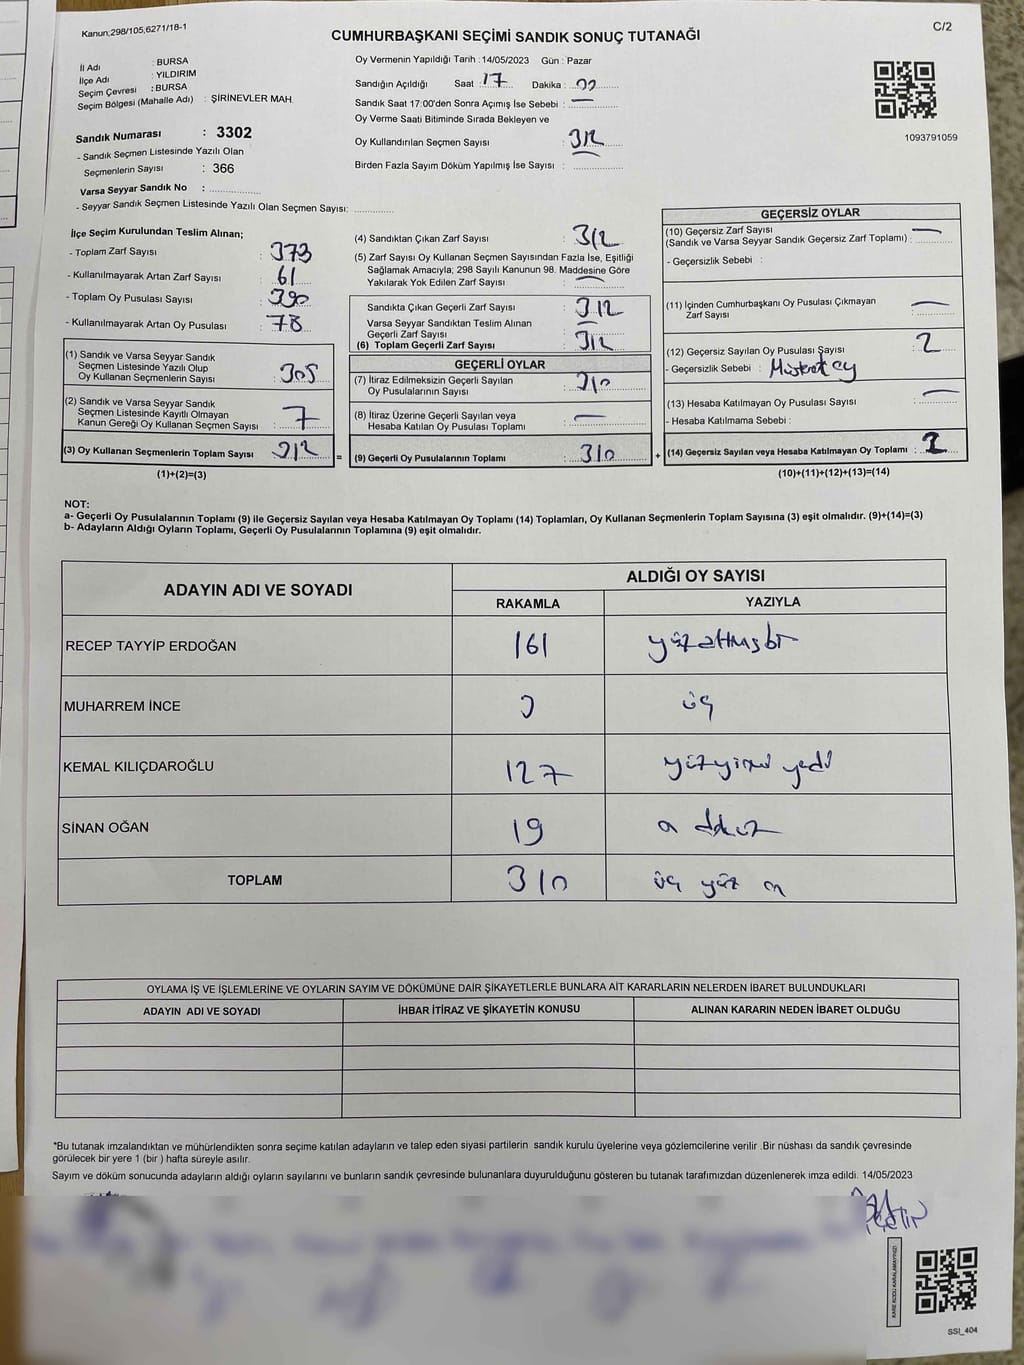 Kanun;298/105;6271/18-1
C/2
CUMHURBAŞKANI SEÇİMİ SANDIK SONUÇ TUTANAĞI
İl Adı : BURSA
İlçe Adı : YILDIRIM
Seçim Çevresi : BURSA
Seçim Bölgesi (Mahalle Adı) : ŞİRİNEVLER MAH.
Sandık Numarası : 3302
- Sandık Seçmen Listesinde Yazılı Olan
Seçmenlerin Sayısı : 366
Varsa Seyyar Sandık No :
- Seyyar Sandık Seçmen Listesinde Yazılı Olan Seçmen Sayısı:
Oy Vermenin Yapıldığı Tarih : 14/05/2023 Gün : Pazar
Sandığın Açıldığı Saat : 17 Dakika :
Sandık Saat 17:00'den Sonra Açımış İse Sebebi : —
Oy Verme Saati Bitiminde Sırada Bekleyen ve
Oy Kullandırılan Seçmen Sayısı : 312
Birden Fazla Sayım Döküm Yapılmış İse Sayısı :
1093791059
İlçe Seçim Kurulundan Teslim Alınan;
- Toplam Zarf Sayısı : 373
- Kullanılmayarak Artan Zarf Sayısı : 61
- Toplam Oy Pusulası Sayısı : 390
- Kullanılmayarak Artan Oy Pusulası : 78
(1) Sandık ve Varsa Seyyar Sandık
Seçmen Listesinde Yazılı Olup
Oy Kullanan Seçmenlerin Sayısı : 305
(2) Sandık ve Varsa Seyyar Sandık
Seçmen Listesinde Kayıtlı Olmayan
Kanun Gereği Oy Kullanan Seçmen Sayısı : 7
(3) Oy Kullanan Seçmenlerin Toplam Sayısı : 312 =
(1)+(2)=(3)
(4) Sandıktan Çıkan Zarf Sayısı : 312
(5) Zarf Sayısı Oy Kullanan Seçmen Sayısından Fazla İse, Eşitliği
Sağlamak Amacıyla; 298 Sayılı Kanunun 98. Maddesine Göre
Yakılarak Yok Edilen Zarf Sayısı : —
Sandıkta Çıkan Geçerli Zarf Sayısı : 312
Varsa Seyyar Sandıktan Teslim Alınan
Geçerli Zarf Sayısı : —
(6) Toplam Geçerli Zarf Sayısı : 312
GEÇERLİ OYLAR
(7) İtiraz Edilmeksizin Geçerli Sayılan
Oy Pusulalarının Sayısı : 310
(8) İtiraz Üzerine Geçerli Sayılan veya
Hesaba Katılan Oy Pusulası Toplamı : —
(9) Geçerli Oy Pusulalarının Toplamı : 310 +
GEÇERSİZ OYLAR
(10) Geçersiz Zarf Sayısı
(Sandık ve Varsa Seyyar Sandık Geçersiz Zarf Toplamı) : —
- Geçersizlik Sebebi :
(11) İçinden Cumhurbaşkanı Oy Pusulası Çıkmayan
Zarf Sayısı : —
(12) Geçersiz Sayılan Oy Pusulası Sayısı : 2
- Geçersizlik Sebebi : Müşterek oy
(13) Hesaba Katılmayan Oy Pusulası Sayısı : —
- Hesaba Katılmama Sebebi :
(14) Geçersiz Sayılan veya Hesaba Katılmayan Oy Toplamı : 2
(10)+(11)+(12)+(13)=(14)
NOT:
a- Geçerli Oy Pusulalarının Toplamı (9) ile Geçersiz Sayılan veya Hesaba Katılmayan Oy Toplamı (14) Toplamları, Oy Kullanan Seçmenlerin Toplam Sayısına (3) eşit olmalıdır. (9)+(14)=(3)
b- Adayların Aldığı Oyların Toplamı, Geçerli Oy Pusulalarının Toplamına (9) eşit olmalıdır.
ADAYIN ADI VE SOYADI
ALDIĞI OY SAYISI
RAKAMLA YAZIYLA
RECEP TAYYİP ERDOĞAN 161 yüzatmışbir
MUHARREM İNCE 3 üç
KEMAL KILIÇDAROĞLU 127 yüzyirmi yedi
SİNAN OĞAN 19 on dokuz
TOPLAM 310 üç yüz on
OYLAMA İŞ VE İŞLEMLERİNE VE OYLARIN SAYIM VE DÖKÜMÜNE DAİR ŞİKAYETLERLE BUNLARA AİT KARARLARIN NELERDEN İBARET BULUNDUKLARI
ADAYIN ADI VE SOYADI İHBAR İTİRAZ VE ŞİKAYETİN KONUSU ALINAN KARARIN NEDEN İBARET OLDUĞU
*Bu tutanak imzalandıktan ve mühürlendikten sonra seçime katılan adayların ve talep eden siyasi partilerin sandık kurulu üyelerine veya gözlemcilerine verilir .Bir nüshası da sandık çevresinde
görülecek bir yere 1 (bir ) hafta süreyle asılır.
Sayım ve döküm sonucunda adayların aldığı oyların sayılarını ve bunların sandık çevresinde bulunanlara duyurulduğunu gösteren bu tutanak tarafımızdan düzenlenerek imza edildi. 14/05/2023
KARE KODU KARALAMAYINIZ!
SSI_404